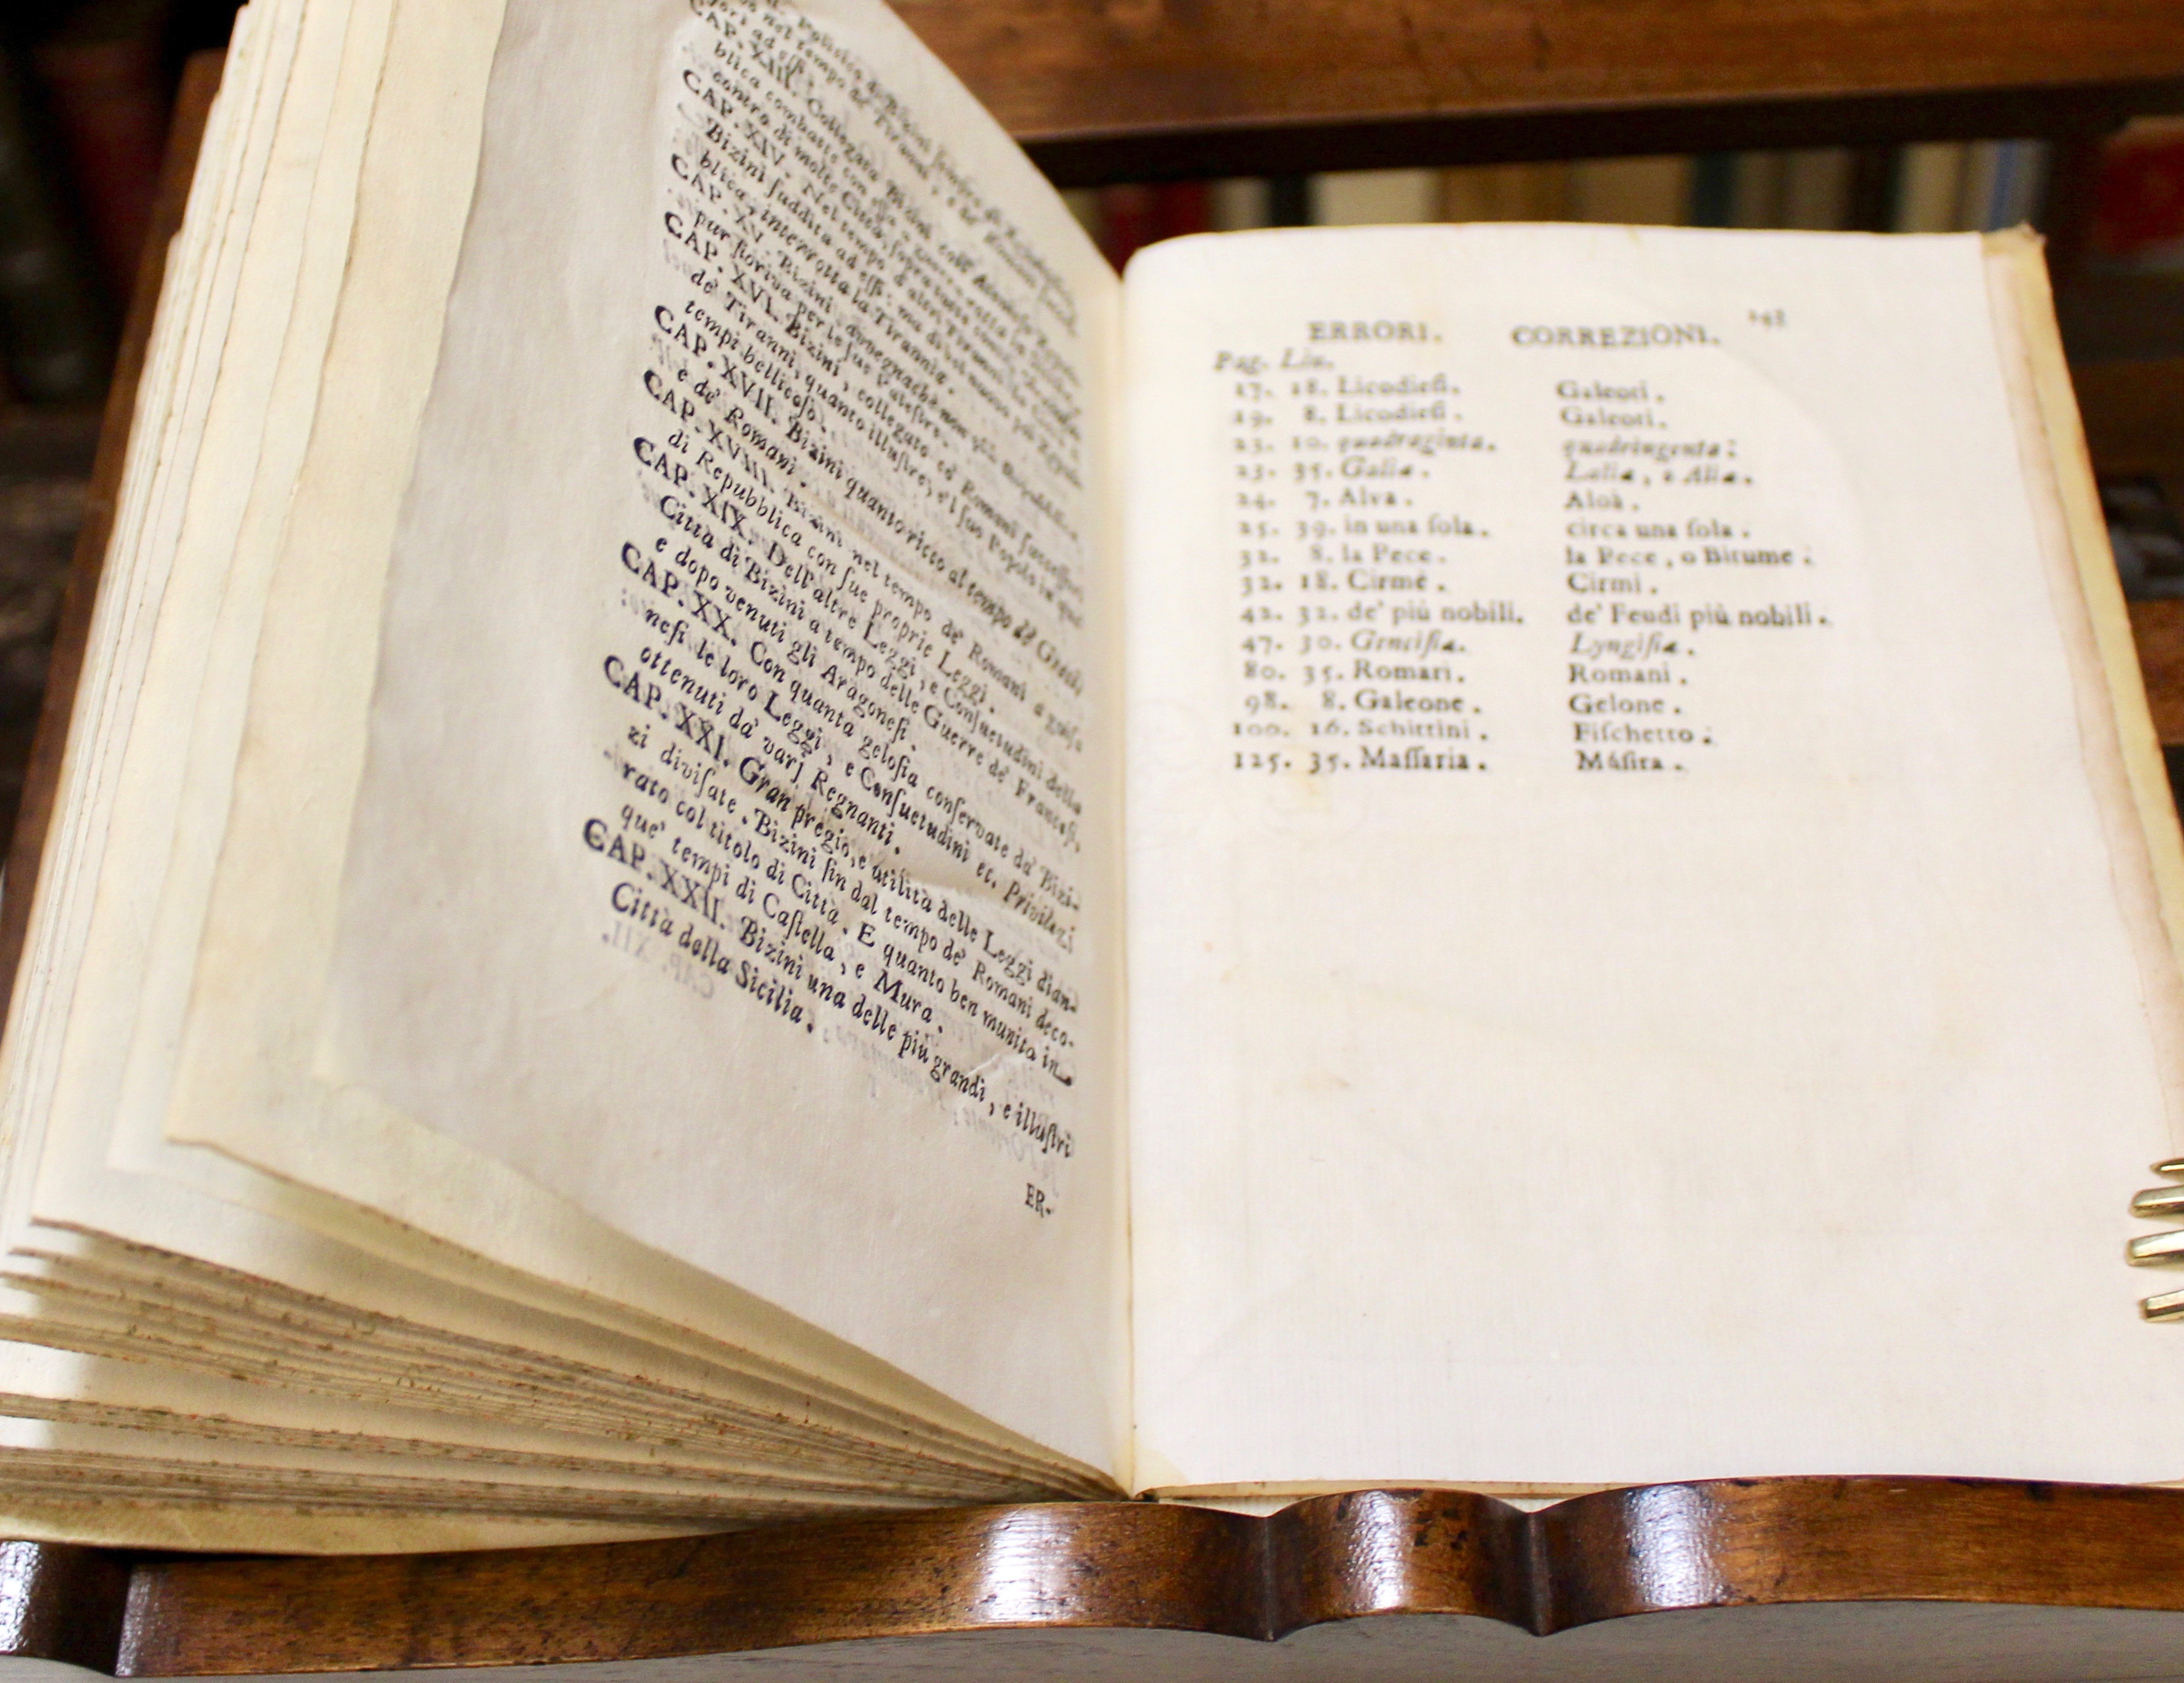 CAP. XIII. Collegata Bizini coll'
blica combatte con esse
contro di molte Città,
CAP. XIV. Nel tempo d'altri Tiranni
Bizini suddita ad essi: ma di bel nuovo
blica, interrotta la Tirannia.
CAP. XV. Bizini, avvegnachè non più Repubblica,
pur fioriva per le sue Palestre.
CAP. XVI. Bizini, collegato co' Romani
de' Tiranni, quanto illustre, e'l suo Popolo in que'
tempi bellicoso.
CAP. XVII. Bizini quanto ricco al tempo de' Greci,
e de' Romani.
CAP. XVIII. Bizini nel tempo de' Romani a guisa
di Repubblica con sue proprie Leggi.
CAP. XIX. Dell'altre Leggi, e Consuetudini della
Città di Bizini a tempo delle Guerre de' Francesi,
e dopo venuti gli Aragonesi.
CAP. XX. Con quanta gelosia conservate da' Bizi-
nesi le loro Leggi, e Consuetudini ec. Privilegi
ottenuti da' varj Regnanti.
CAP. XXI. Gran pregio, e utilità delle Leggi dian-
zi divisate. Bizini fin dal tempo de' Romani deco-
rato col titolo di Città. E quanto ben munita in
que' tempi di Castella, e Mura.
CAP. XXII. Bizini una delle più grandi, e illustri
Città della Sicilia.
ER-
ERRORI. CORREZIONI. 143
Pag. Lin.
17. 18. Licodiesi. Galeoti.
19. 8. Licodiesi. Galeoti.
23. 10. quadraginta. quadringenta:
23. 35. Galia. Lalia, e Alia.
24. 7. Alva. Aloà.
25. 39. in una sola. circa una sola.
32. 8. la Pece. la Pece, o Bitume:
32. 18. Cirmè. Cirmi.
42. 32. de' più nobili. de' Feudi più nobili.
47. 30. Gencisia. Lyngisia.
80. 35. Romari. Romani.
98. 8. Galeone. Gelone.
100. 16. Schittini. Fischetto:
125. 35. Massaria. Másira.